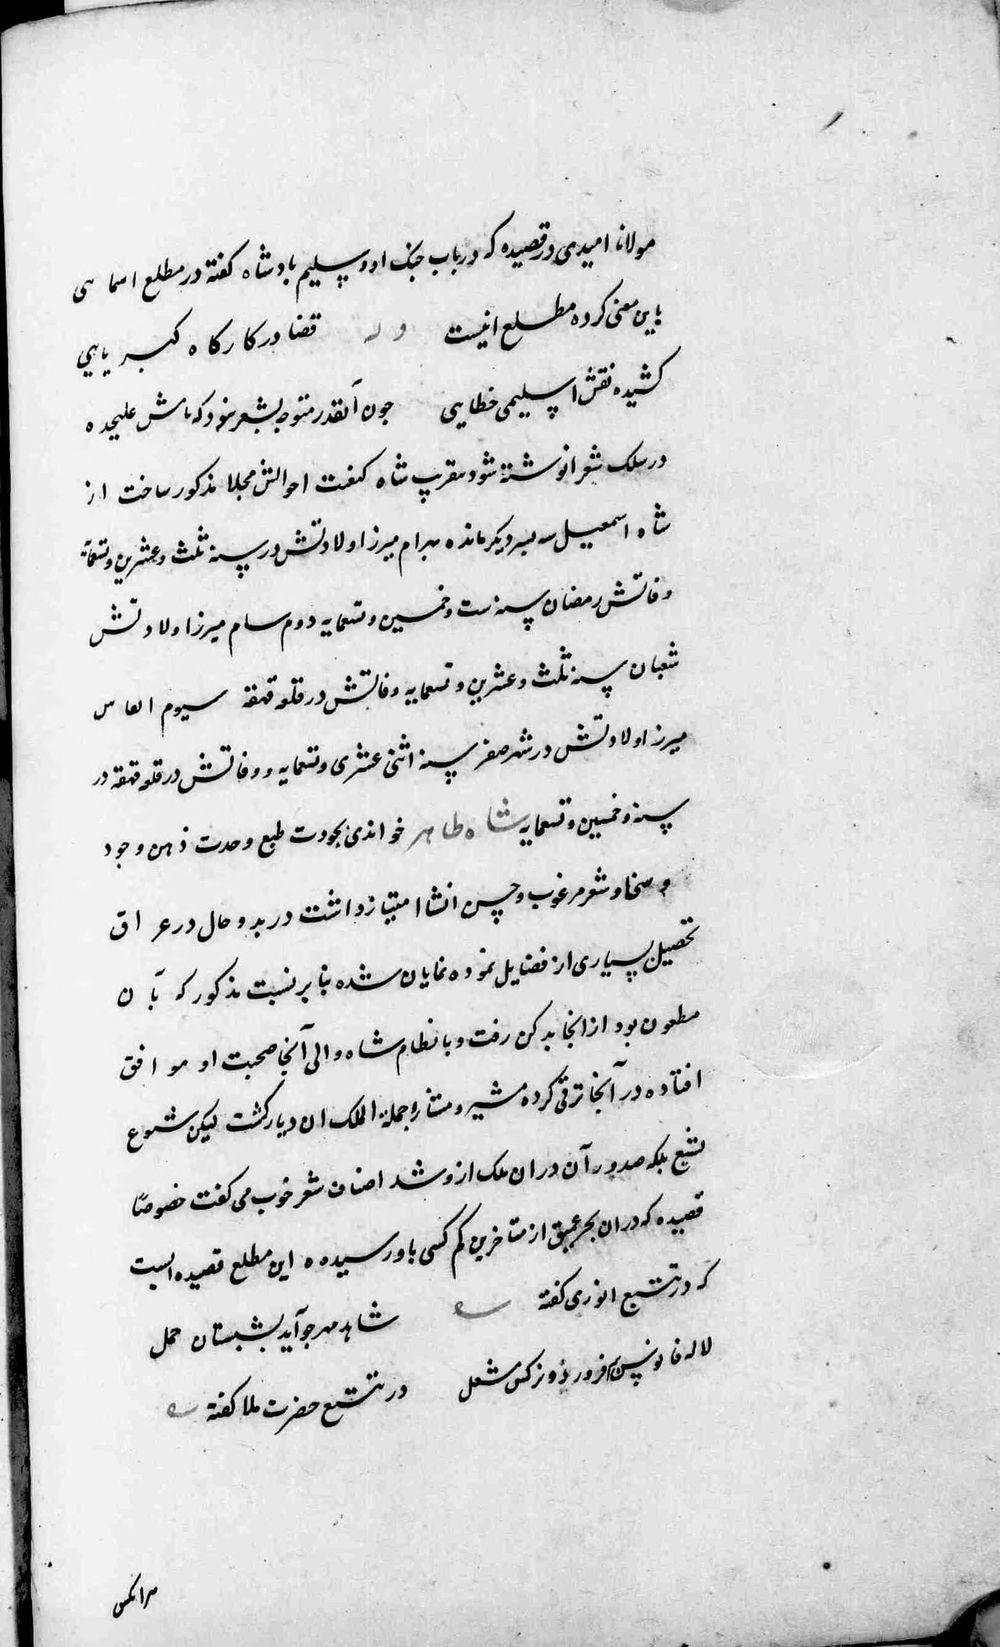 مولانا امیدی در قصیده که در باب جنک او و سلیم بادشاه کفته در مطلع ایمایی
باین معنی کرده مطلع اینست وله قضا در کارکاه کبریایی
کشیده نقش اسلیمی خطایی جون آنقدر متوجه بشعر نبود که نامش علیحده
در سلک شعرا نوشته شود بتقریب شاه کیفیت احوالش مجملا مذکور ساخت از
شاه اسمعیل سه پسر دیکر مانده بهرام میرزا ولادتش در سنه ثلث و عشرین و تسعمایه
وفاتش رمضان سنه ست و خمسین و تسعمایه دوم سام میرزا ولادتش
شعبان سنه ثلث و عشرین و تسعمایه وفاتش در قلعه قهقه سیوم القاس
میرزا ولادتش در شهر صفر سنه اثنی عشری و تسعمایه و وفاتش در قلعه قهقه در
سنه و خمسین و تسعمایه شاه طاهر خواندی بجودت طبع وحدت ذهن وجود
و سخا و شعر مرغوب و حسن انشا امتیاز داشت در بدو حال در عراق
تحصیل بسیاری از فضایل نموده نمایان شده بنابر نسبت مذکور که بآن
مطعون بود از انجا بدکن رفت و با نظام شاه والی آنجا صحبت او موافق
افتاده در آنجا ترقی کرده مشیر و مشار جملة الملک ان دیار کشت لیکن شیوع
تشیع بلکه صدور آن در ان ملک ازو شد اصناف شعر خوب می کفت خصوصا
قصیده که دران بحر عمیق از متاخرین کم کسی باو رسیده این مطلع قصیده ایست
که در تتبع انوری کفته شاهد مهر جو آید بشبستان حمل
لاله فانوس بر افروزد و نرکس مشعل در تتبع حضرت ملا کفته
هرانکس